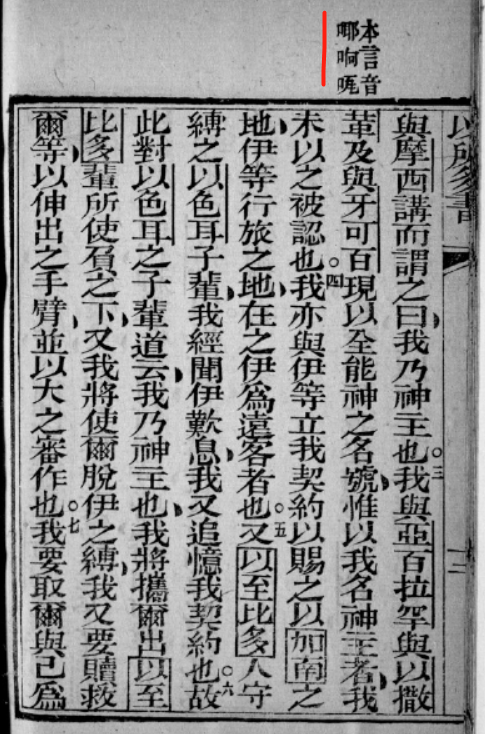 本言音
以所多書
十二
與摩西講而謂之曰我乃神主也○三我與亞百拉罕與以撒
革及與牙可百現以全能神之名號惟以我名神主者我
未以之被認也○四我亦與伊等立我契約以賜之以加南之
地伊等行旅之地在之伊為遠客者也○五又以至比多人守
縛之以色耳子輩我經聞伊歎息我又追憶我契約也○六故
此對以色耳之子輩道云我乃神主也我將攜爾出以至
比多輩所使負之下又我將使爾脫伊之縛我又要贖救
爾等以伸出之手臂並以大之審作也○七我要取爾與己為